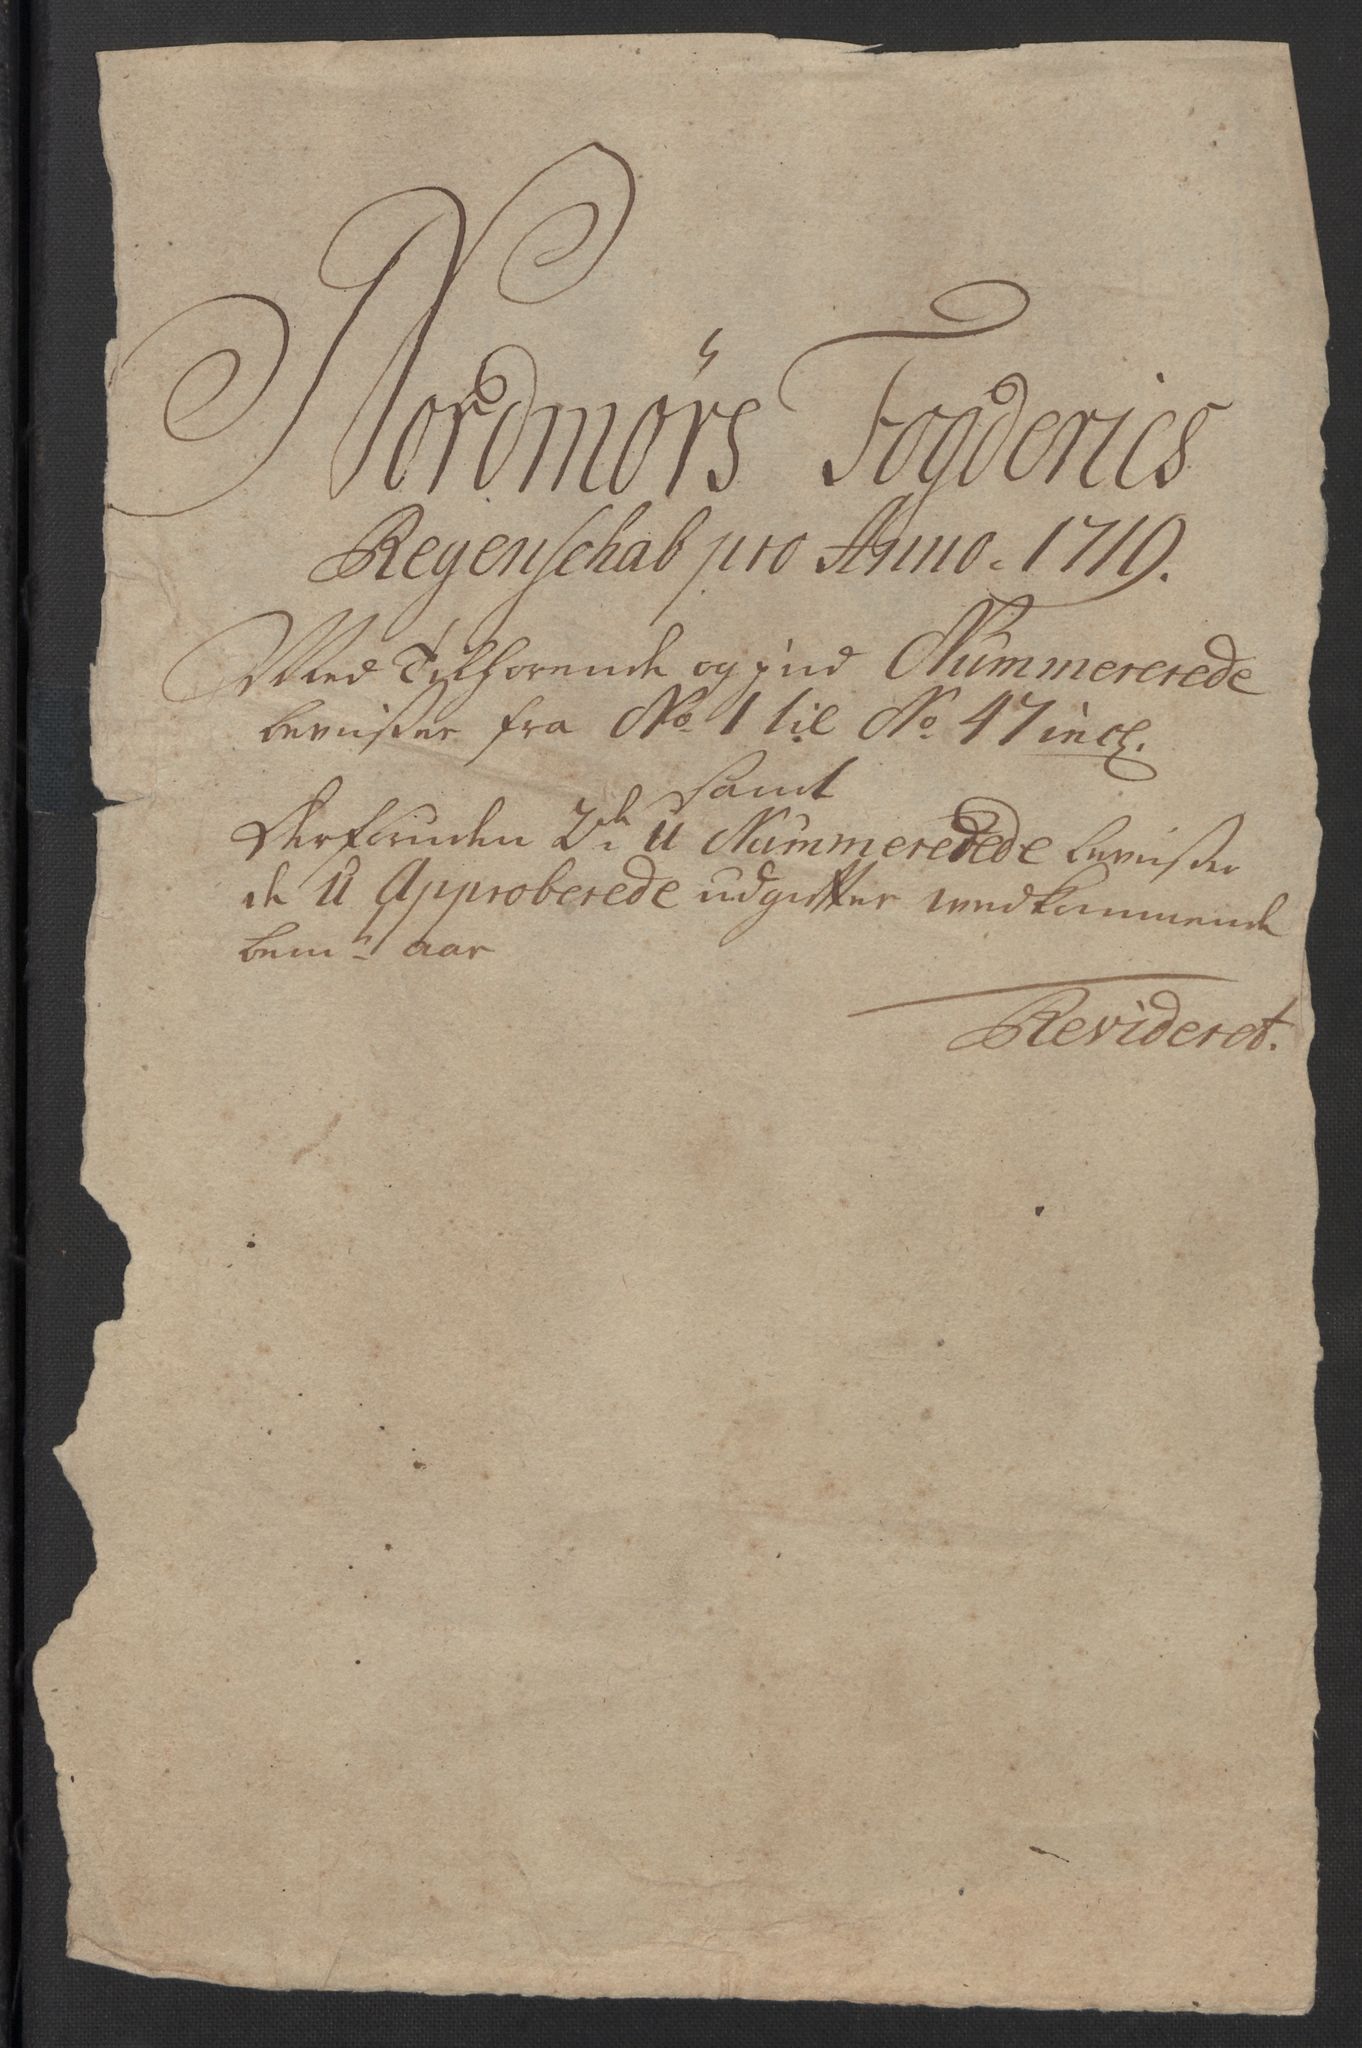 Nordmørs Fogderies
Regenschab pro Anno. 1719.
Med Tilhørende og ind Nummererede
beviißer fra No. 1 til No. 47 incl.
Samt
Derforuden 2de U Nummererede beviißer
de U Approberede udgifter vedkommende
bemte aar
Revideret.